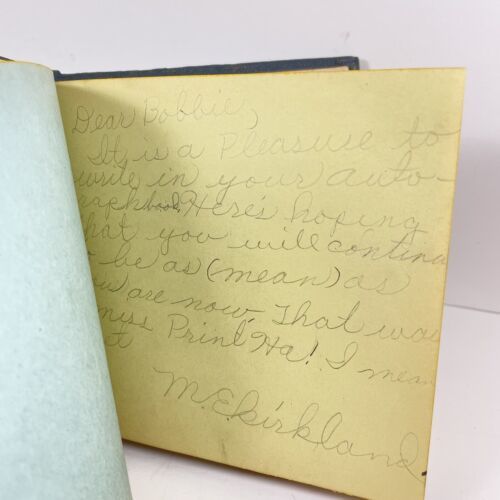 Dear Bobbie,
It is a Pleasure to
write in your auto-
raph book. Here's hoping
hat you will continu
be as (mean) as
u are now. That was
miss Print, Ha! I mean
t
M.E. Kirkland